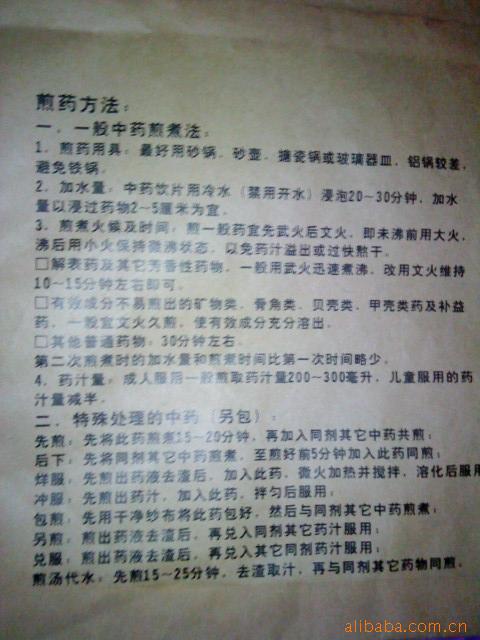 煎药方法：
一．一般中药煎煮法：
1．煎药用具：最好用砂锅．砂壶．搪瓷锅或玻璃器皿．铝锅较差．
避免铁锅．
2．加水量：中药饮片用冷水（禁用开水）浸泡20～30分钟，加水
量以浸过药物2～5厘米为宜．
3．煎煮火候及时间：煎一般药宜先武火后文火．即未沸前用大火．
沸后用小火保持微沸状态．以免药汁溢出或过快熬干．
□解表药及其它芳香性药物．一般用武火迅速煮沸．改用文火维持
10～15分钟左右即可．
□有效成分不易煎出的矿物类．骨角类．贝壳类．甲壳类药及补益
药．一般宜文火久煎．使有效成分充分溶出．
□其他普通药物：30分钟左右．
第二次煎煮时的加水量和煎煮时间比第一次时间略少．
4．药汁量：成人服用一般煎取药汁量200～300毫升．儿童服用的药
汁量减半．
二．特殊处理的中药（另包）：
先煎：先将此药煎煮15～20分钟，再加入同剂其它中药共煎；
后下：先将同剂其它中药煎煮．至煎好前5分钟加入此药同煎；
烊服：先煎出药液去渣后．加入此药．微火加热并搅拌．溶化后服用
冲服：先煎出药汁．加入此药．拌匀后服用；
包煎：先用干净纱布将此药包好．然后与同剂其它中药煎煮；
另煎：煎出药液去渣后．再兑入同剂其它药汁服用；
兑服：煎出药液去渣后．再兑入其它同剂药汁服用；
煎汤代水：先煎15～25分钟．去渣取汁．再与同剂其它药物同煎．
alibaba.com.cn